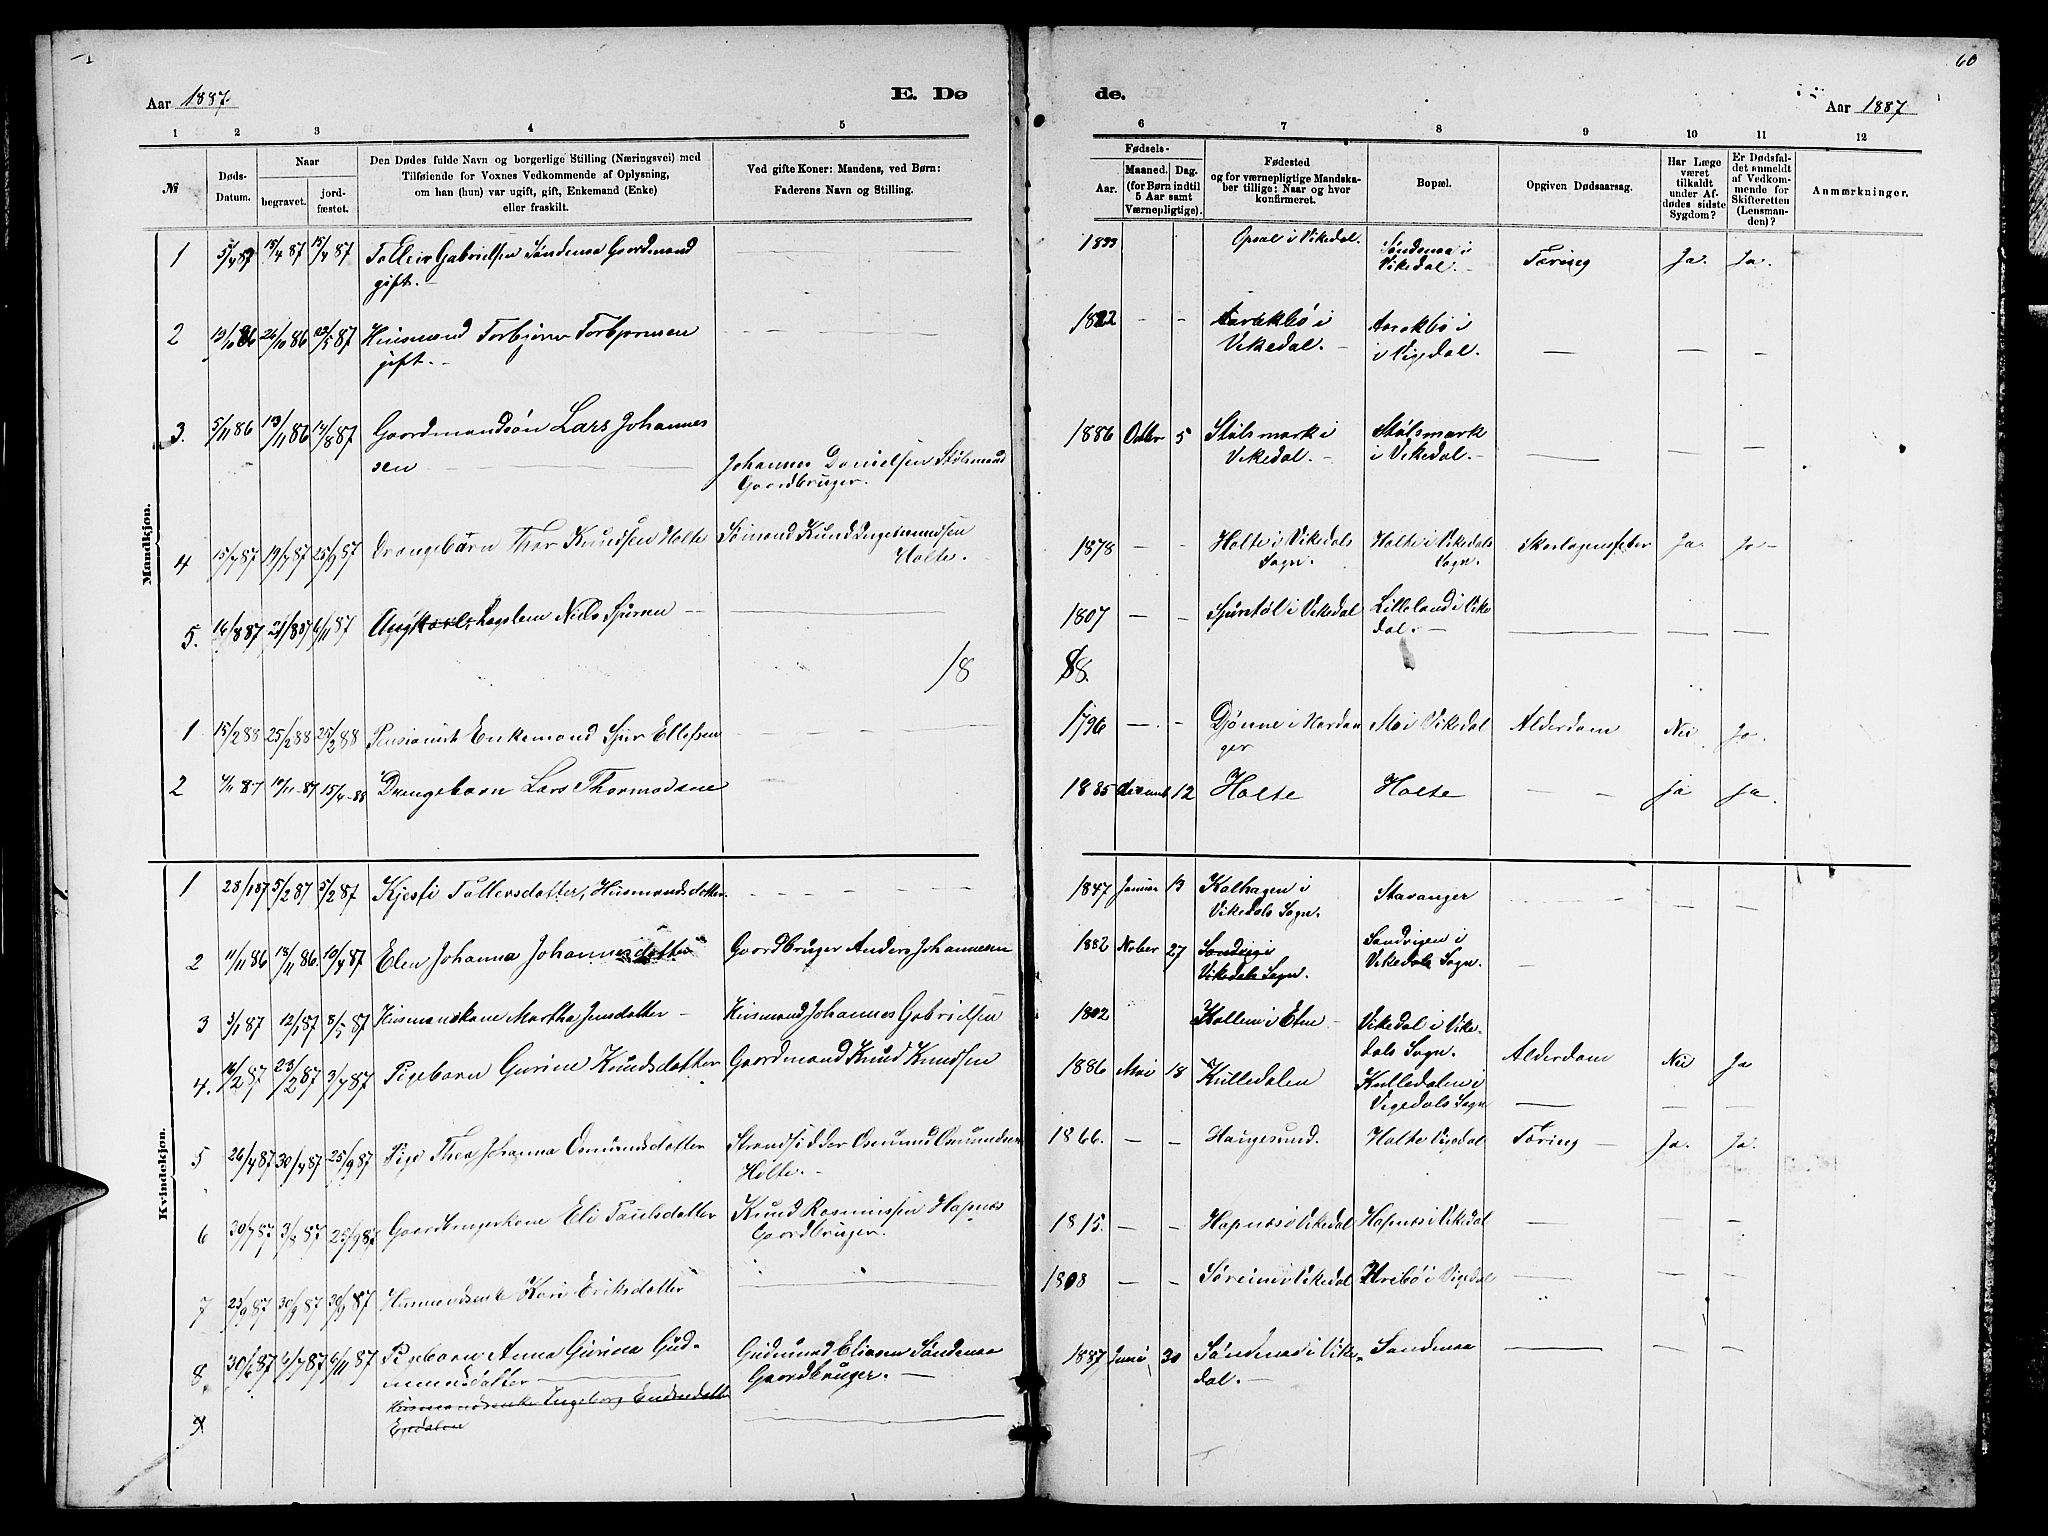 60
Aar 1887.
E. Dø
de.
Aar 1887
1 2 3 4 5
6 7 8 9 10 11 12
№
Døds-
Datum.
Naar
begravet.
jord-
fæstet.
Den Dødes fulde Navn og borgerlige Stilling (Næringsvei) med
Tilføiende for Voxnes Vedkommende af Oplysning,
om han (hun) var ugift, gift, Enkemand (Enke)
eller fraskilt.
Ved gifte Koner: Mandens, ved Børn:
Faderens Navn og Stilling.
Fødsels-
Aar.
Maaned. Dag.
(for Børn indtil
5 Aar samt
Værnepligtige).
Fødested
og for værnepligtige Mandska-
ber tillige: Naar og hvor
konfirmeret.
Bopæl.
Opgiven Dødsaarsag.
Har Læge
været
tilkaldt
under Af-
dødes sidste
Sygdom?
Er Dødsfal-
det anmeldt
af Vedkom-
mende for
Skifteretten
(Lensman-
den)?
Anmærkninger.
Mandkjøn.
1 5/4 87 15/4 87 15/4 87 Gabrielsen Søndenaa Gaardmand
gift. —
Opsal i Vikedal. Søndenaa i
Vikedal. — Tæring Ja. Ja.
2 19/10 86 26/10 86 Husmand Torbjørn Torbjørnsen
gift. —
1822 — — i
Vikedal. —
i Vigedal. — — —
3. 5/11 86 13/11 86 13/8 87 Gaardmandssøn Lars Johannes
sen
Johannes Danielsen Stølsmark
Gaardbruger.
1886 Octbr 5 Stølsmark i
Vikedal. — Stølsmark
i Vikedal. — — — —
4 15/7 87 19/7 87 25/9 87 Drengebarn Thor Knudsen Holte
Sømand Knud Ingemundsen
Holte.
1878 — — Holte i Vikedals
Sogn. Holte i Vikedals
Sogn. Skarlagensfeber Ja Ja —
5. 16/8 87 21/8 87 6/11 87 Lægslem Niels —
1807 — — i Vikedal Lilleland i Vike
dal. — — — —
18 88.
1 15/2 88 25/2 88 25/2 88 Pensionist Enkemand Ellefsen
1796 — — Djønne i Hardan
ger Mo i Vikedal Alderdom Nei Ja.
2 4/11 87 15/4 88 Drengebarn Lars Thormodsen
1885 12 Holte Holte — — Ja Ja.
Kvindekjøn.
1 28/1 87 5/2 87 5/2 87 Kjesti Tollersdatter, Husmandsdatter
1847 Januar 13 Kalhagen i
Vikedals Sogn. Stavanger
2 11/11 86 18/11 86. 10/4 87 Elen Johanna Johannesdatter Gaardbruger Anders Johannesen
1882 Nober 27 Sandvig i
Vikedals Sogn. Sandvigen i
Vikedals Sogn. —
3 3/1 87 12/1 87 8/5 87 Husmandskone Martha Jensdatter — Husmand Johannes Gabrielsen
1802 i Etne — Vikedal i Vike-
dals Sogn. Alderdom Nei Ja
4. 16/2 87 23/2 87 3/7 87 Pigebarn Gurine Knudsdatter Gaardmand Knud Knudsen
1886 Mai 18 Kulledalen Kulledalen i
Vigedals Sogn — — —
5 26/4 87 30/4 87 25/9 87 Pige Thea Johanna Osmundsdatter Strandsidder Osmund Osmundsen
Holte. —
1866. — — Haugesund. Holte Vigedal Tæring — Ja. Ja.
6 30/7 87 3/8 87 25/9 87 Gaardbrugerkone Eli Paulsdatter Knud Rasmussen Hapnæs
Gaardbruger.
1815. — — Hapnæs i Vikedal Hapnæs i Vikedal — — —
7 23/9 87 30/9 87 30/9 87 Husmandsenke Kari Eriksdatter
1808 — — Søreim i Vikedal i Vigedal — — —
8. 30/6 87 6/7 87 6/11 87 Pigebarn Anna Gurina Gud-
mundsdatter
Gudmund Eliasen Søndenaa
Gaardbruger. —
1887 Juni 30 Søndenaa i Vike-
dal. — Søndenaa — — —
9 Husmandsenke Ingeborg